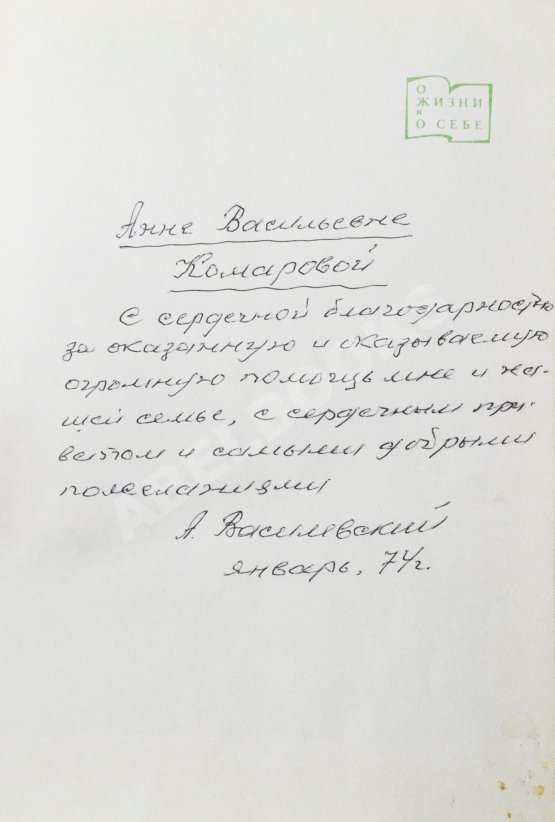 О
ЖИЗНИ
И
О СЕБЕ
Анне Васильевне
Комаровой
С сердечной благодарностью
за оказанную и оказываемую
огромную помощь мне и на-
шей семье, с сердечным при-
ветом и самыми добрыми
пожеланиями
А. Василевский
январь, 74г.